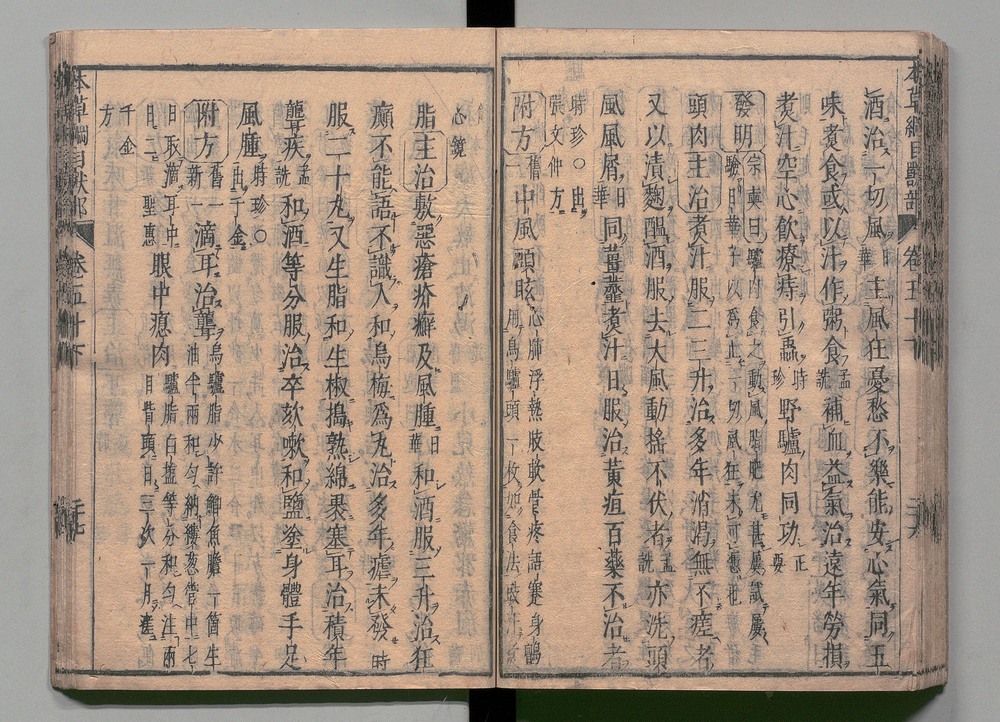 酒治一切風日華主風狂憂愁不樂能安心氣同五
味煮食或以汁作粥食孟詵補血益氣治遠年勞損
煮汁空心飲療痔引蟲時珍野驢肉同功正要
發明宗奭曰驢肉食之動風脂肥尤甚屢試屢驗日華子以爲止一切風狂未可憑也
頭肉主治煮汁服二三升治多年消渴無不瘥者
又以漬麴醞酒服去大風動搖不伏者孟詵亦洗頭
風風屑日華同薑虀煮汁日服治黃疸百藥不治者
時珍○出張文仲方
附方舊一中風頭眩心肺浮熱肢軟骨疼語蹇身顫用烏驢頭一枚如食法
心鏡
脂主治敷惡瘡疥癬及風腫日華和酒服三升治狂
癲不能語不識人和烏梅爲丸治多年瘧未發時
服二十丸又生脂和生椒搗熟綿裹塞耳治積年
聾疾孟詵和酒等分服治卒欬嗽和鹽塗身體手足
風腫時珍○出千金
附方舊一新一滴耳治聾烏驢脂少許鯽魚膽一箇生油半兩和勻納樓葱管中七日取滴耳中聖惠眼中瘜肉驢脂白鹽等分和勻注兩目眥頭日三次一月瘥
千金方
本草綱目獸部 卷五十下